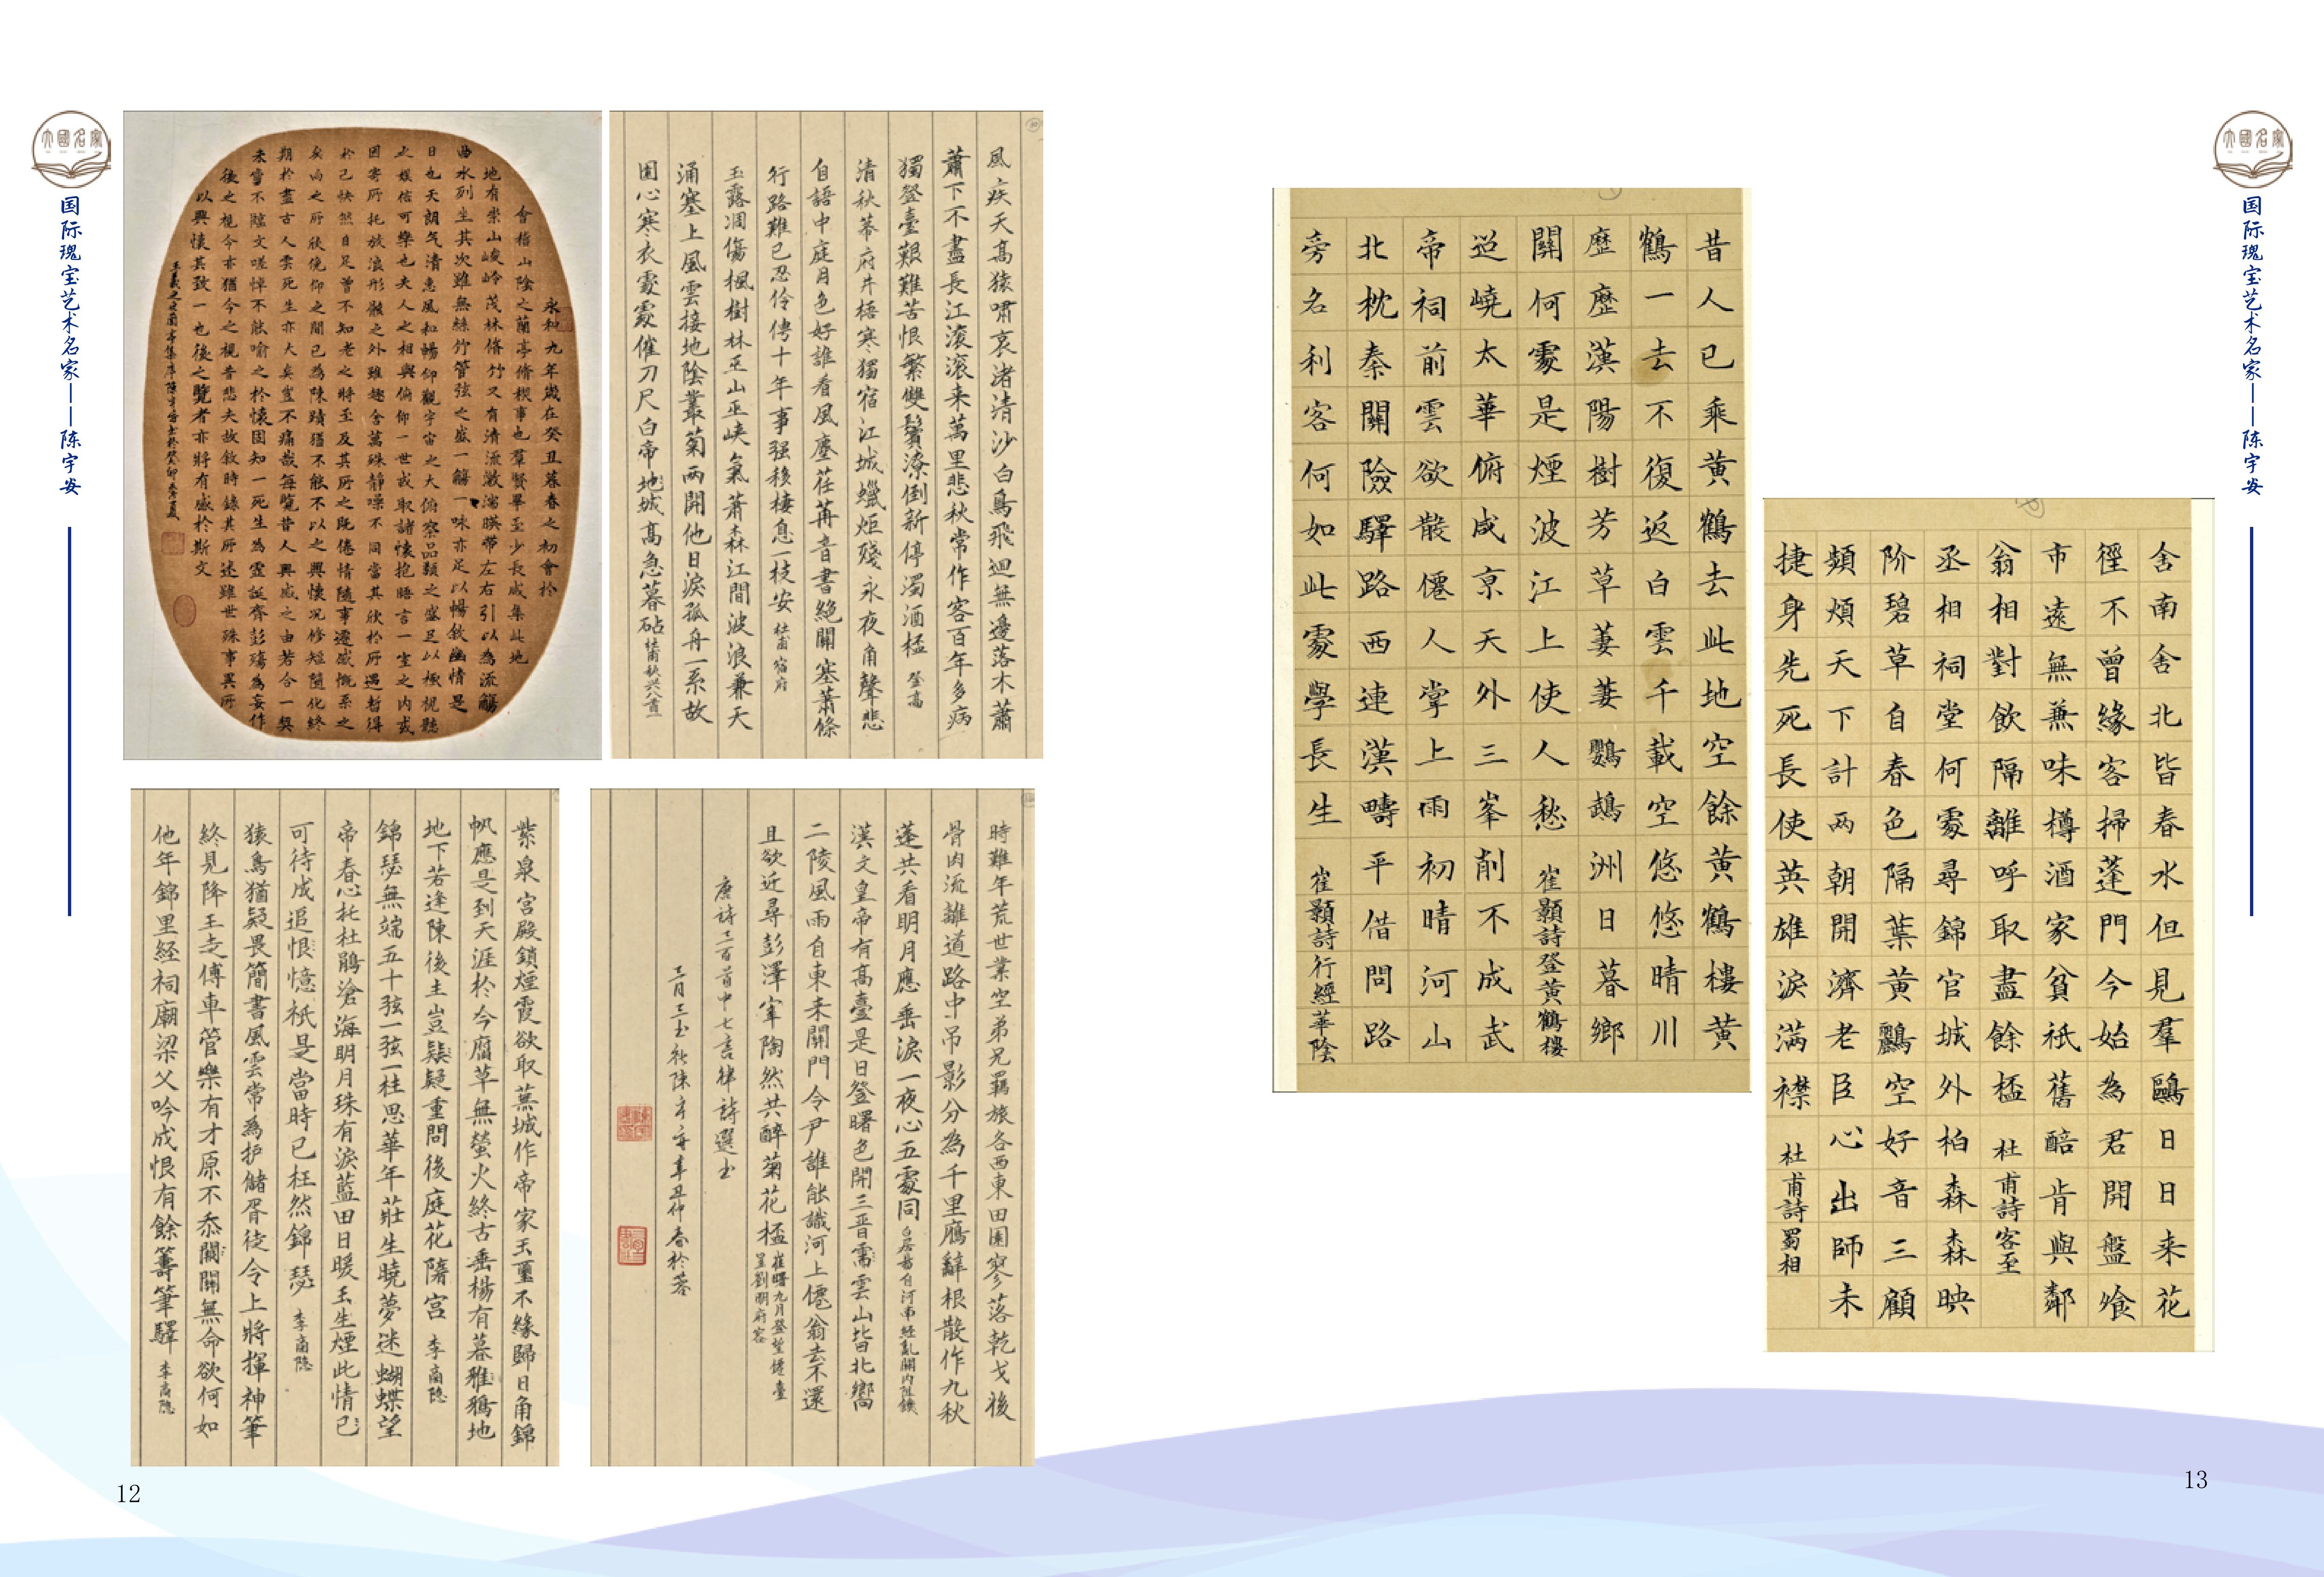 大國名家
国际瑰宝艺术名家——陈宇安
永和九年歲在癸丑暮春之初會於
會稽山陰之蘭亭脩稧事也羣賢畢至少長咸集此地
地有崇山峻岭茂林脩竹又有清流激湍暎帶左右引以為流觴
曲水列坐其次雖無絲竹管弦之盛一觴一咏亦足以暢敘幽情是
日也天朗气清惠風和暢仰觀宇宙之大俯察品類之盛足以極視聽
之娱信可樂也夫人之相與俯仰一世或取諸懷抱晤言一室之内或
因寄所托放浪形骸之外雖趣舍萬殊静噪不同當其欣於所遇暫得
於己快然自足曾不知老之將至及其所之既倦情隨事遷感慨系之
矣向之所欣俛仰之間已為陳蹟猶不能不以之興懷况修短隨化終
期於盡古人雲死生亦大矣豈不痛哉每覽昔人興感之由若合一契
未嘗不臨文嗟悼不能喻之於懷固知一死生為虛誕齊彭殤為妄作
後之視今亦猶今之視昔悲夫故敘時錄其所述雖世殊事異所
以興懷其致一也後之覽者亦將有感於斯文
王羲之之蘭亭集序陳宇安書於癸卯孟夏
風疾天高猿嘯哀渚清沙白鳥飛迴無邊落木蕭
蕭下不盡長江滚滚来萬里悲秋常作客百年多病
獨登臺艱難苦恨繁雙鬢潦倒新停濁酒桮 登高
清秋幕府井梧寒獨宿江城蠟炬殘永夜角聲悲
自語中庭月色好誰看風塵荏苒音書絶關塞蕭條
行路難已忍伶俜十年事强移棲息一枝安 杜甫宿府
玉露凋傷楓樹林巫山巫峡氣蕭森江間波浪兼天
涌塞上風雲接地陰叢菊两開他日淚孤舟一系故
園心寒衣處處催刀尺白帝地城高急暮砧 杜甫秋兴八首
紫泉宫殿鎖煙霞欲取蕪城作帝家玉璽不緣歸日角錦
帆應是到天涯於今腐草無螢火終古垂楊有暮雅鴉地
地下若逢陳後主豈疑疑重問後庭花隋宫 李商隐
錦瑟無端五十弦一弦一柱思華年莊生曉夢迷蝴蝶望
帝春心托杜鵑滄海明月珠有淚藍田日暖玉生煙此情已
可待成追恨憶祇是當時已枉然錦瑟 李商隐
猿鳥猶疑畏簡書風雲常為护儲胥徒令上將揮神筆
終見降王走傅車管樂有才原不忝關關無命欲何如
他年錦里経祠廟梁父吟成恨有餘籌筆驛 李商隐
時難年荒世業空弟兄羈旅各西東田園寥落乾戈後
骨肉流離道路中吊影分為千里鴈辭根散作九秋
蓬共看明月應垂淚一夜心五處同 白居易自河南経亂關内阻饑
漢文皇帝有高臺是日登曙色開三晋雲山皆北嚮
二陵風雨自東来關門令尹誰能識河上僊翁去不還
且欲近尋彭澤宰陶然共醉菊花桮 崔曙九月登望僊臺呈劉明府容
唐詩三百首中七言律詩選书
陳宇安辛丑仲春於蓉
12
昔人已乘黄鶴去此地空餘黄鶴樓黄
鶴一去不復返白雲千載空悠悠晴川
歷歷漢陽樹芳草萋萋鸚鵡洲日暮鄉
關何處是煙波江上使人愁 崔顥詩登黄鶴樓
迢嶢太華俯咸京天外三峯削不成武
帝祠前雲欲散僊人掌上雨初晴河山
北枕秦關險驛路西連漢疇平借問路
旁名利客何如此處學長生 崔顥詩行經華陰
舍南舍北皆春水但見羣鷗日日来花
徑不曾緣客掃蓬門今始為君開盤飧
市遠無兼味樽酒家貧祇舊醅肯與鄰
翁相對飲隔離呼取盡餘桮 杜甫詩客至
丞相祠堂何處尋錦官城外柏森森映
阶碧草自春色隔葉黄鸝空好音三顧
頻煩天下計两朝開濟老臣心出師未
捷身先死長使英雄淚满襟 杜甫詩蜀相
大國名家
国际瑰宝艺术名家——陈宇安
13